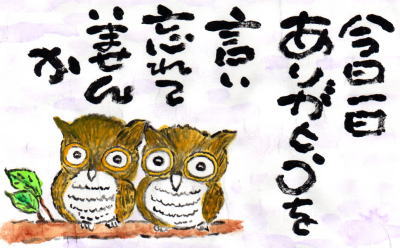 今日一日
ありがとうを
言い
忘れて
いません
か